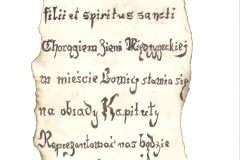 filii et spiritus sancti
Chorągiew Ziemi Międzyrzeckiej
w mieście Łomicy stawia się
na obrady Kapituły
Reprezentować nas będzie